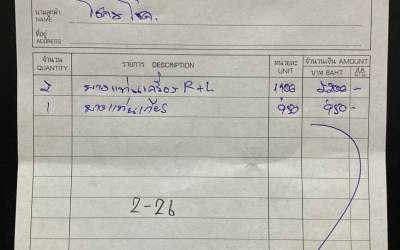 นามลูกค้า
NAME โชคนำโชค.
ที่อยู่
ADDRESS
จำนวน รายการ DESCRIPTION หน่วยละ จำนวนเงิน AMOUNT
QUANTITY UNIT บาท BAHT
2 ยางแท่นเครื่อง R+L 1100 2200 -
1 ยางแท่นเกียร์ 950 950 -
2-26